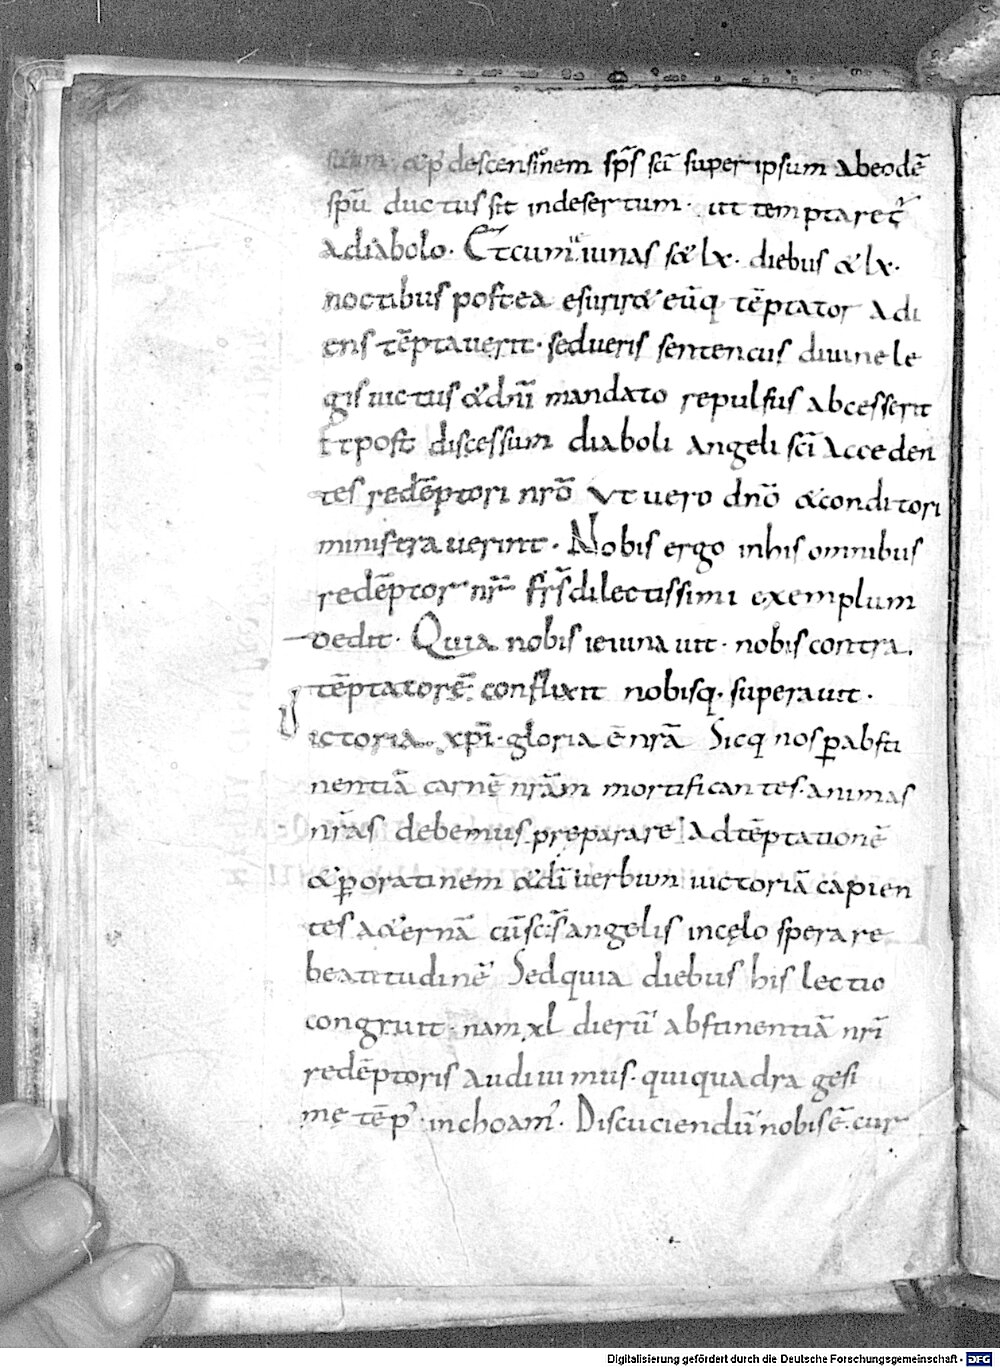 suum · & p̄ descensionem sp̄s sc̄i super ipsum ab eodē
sp̄u ductus sit in desertum · ut temptaret᷑
a diabolo · Et cum ieiunasset lx · diebus & lx ·
noctibus postea esurir& eūq tēptator adi
ens tēptauerit · sed ueris sentencus diuine le
gis uictus & dn̄i mandato repulsus abcesserit
Et post discessum diaboli angeli sc̄i acceden
tes redēptori nr̄o ut uero dn̄o & conditori
ministrauerint · Nobis ergo in his omnibus
redēptor nr̄ fr̄s dilectissimi exemplum
dedit · Quia nobis ieiunauit · nobis contra
tēptatorē conflixit nobisq · superauit ·
Victoria xp̄i · gloria ē nr̄a Sicq nos p̄ absti
nentiā carnē nr̄am mortificantes · animas
nr̄as debemus preparare ad tēptationē
& p̄ oratinem & dī uerbum uictoriā capien
tes a&ernā cū sc̄is angelis in cęlo sperare
beatitudinē Sed quia diebus his lectio
congruit · nam xl dierū abstinentiā nr̄i
redēptoris audiuimus · qui quadragesi
mę tēp᷒ inchoam᷒ · Discuciendū nobis ē · cur
Digitalisierung gefördert durch die Deutsche Forschungsgemeinschaft - DFG